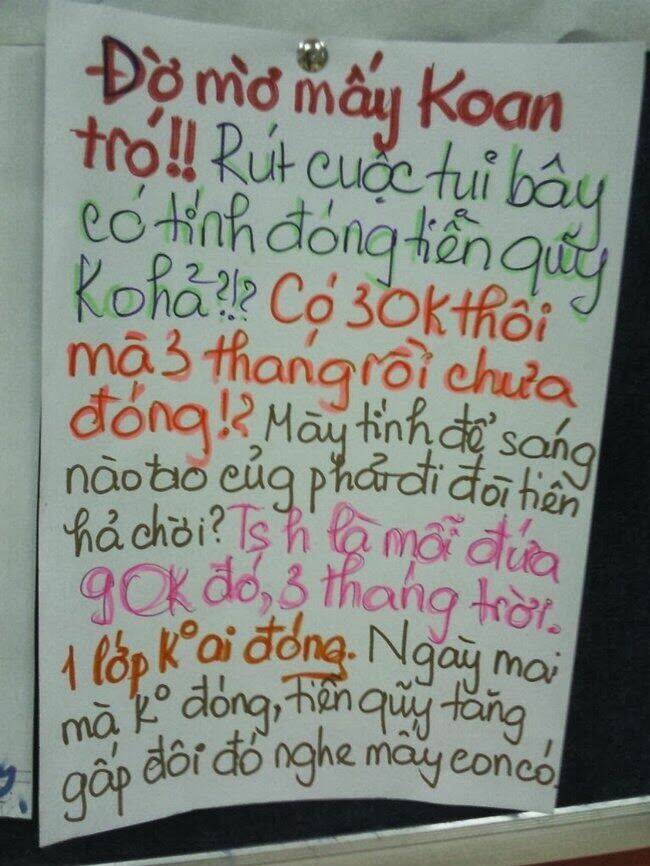 Đờ mờ mấy Koan
tró!! Rút cuộc tui bây
có tính đóng tiền quỹ
Ko hả?!? Có 30K thôi
mà 3 tháng rồi chưa
đóng!? Mày tính để sáng
nào tao củg phải đi đòi tiền
hả chời? Ts h là mỗi đứa
90K đó, 3 tháng trời.
1 lớp K° ai đóng. Ngày mai
mà K° đóng, tiền quỹ tăng
gấp đôi đó nghe mấy con có.